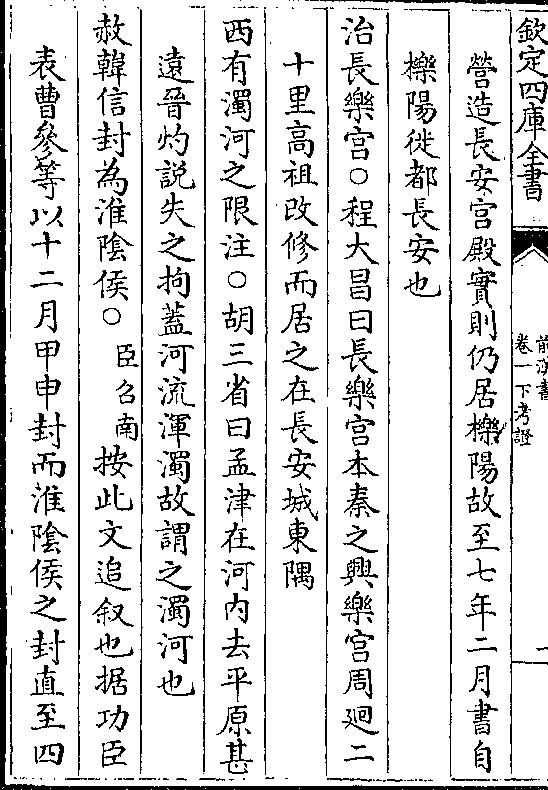 欽定四庫全書
前漢書
卷一下考證
一
營造長安宮殿實則仍居櫟陽故至七年二月書自
櫟陽徙都長安也
治長樂宮○程大昌曰長樂宮本秦之興樂宮周迴二
十里高祖改修而居之在長安城東隅
西有濁河之限注○胡三省曰孟津在河内去平原甚
遠晉灼説失之拘蓋河流渾濁故謂之濁河也
赦韓信封為淮陰侯○臣召南按此文追叙也据功臣
表曹參等以十二月甲申封而淮陰侯之封直至四